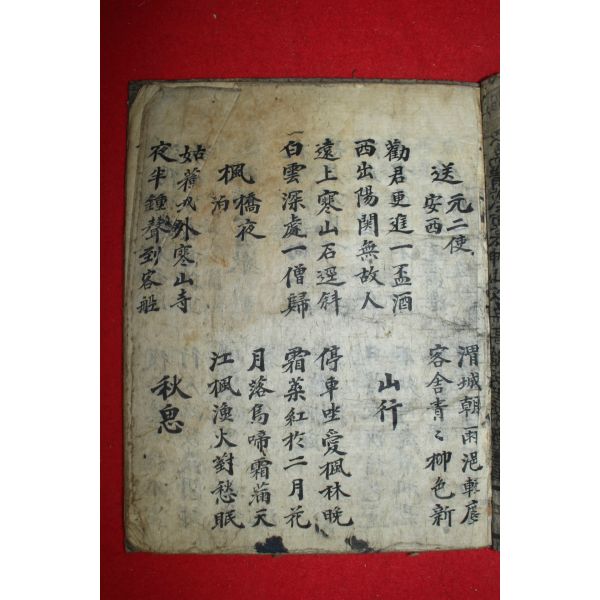 送元二使安西
渭城朝雨浥輕塵
客舍青〻柳色新
勸君更進一盃酒
西出陽関無故人
山行
遠上寒山石逕斜
白雲深處一僧歸
停車坐愛楓林晚
霜葉紅於二月花
楓橋夜泊
月落烏啼霜滿天
江楓漁火對愁眠
姑蘓城外寒山寺
夜半鍾聲到客船
秋思